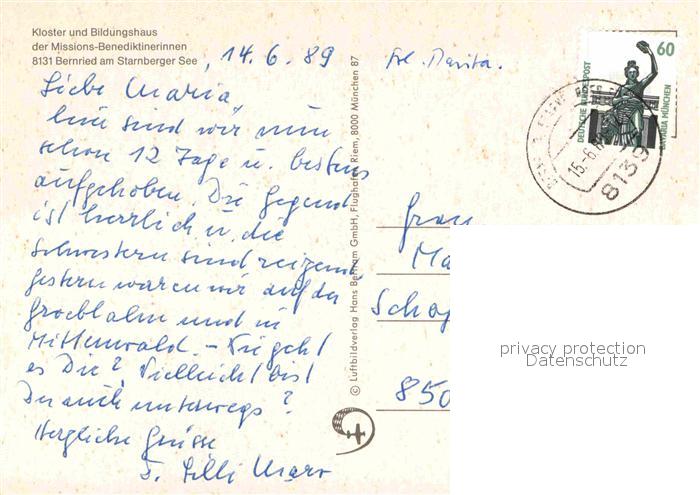 Kloster und Bildungshaus
der Missions-Benediktinerinnen
8131 Bernried am Starnberger See
, 14.6.89
Liebe Maria,
hier sind wir nun
schon 12 Tage u. bestens
aufgehoben. Die Gegend
ist herrlich u. die
Schwestern sind reizend
gestern waren wir auf der
Groeblalm und in
Mittenwald. - Wie geht
es Dir? Vielleicht bist
Du auch unterwegs?
Herzliche Grüsse
Lilli
© Luftbildverlag Hans Bertram GmbH, Flughafen Riem, 8000 München 87
60
DEUTSCHE BUNDESPOST
BAVARIA MÜNCHEN
15.-6.
8139
Frau
Ma
Scha
850
privacy protection
Datenschutz